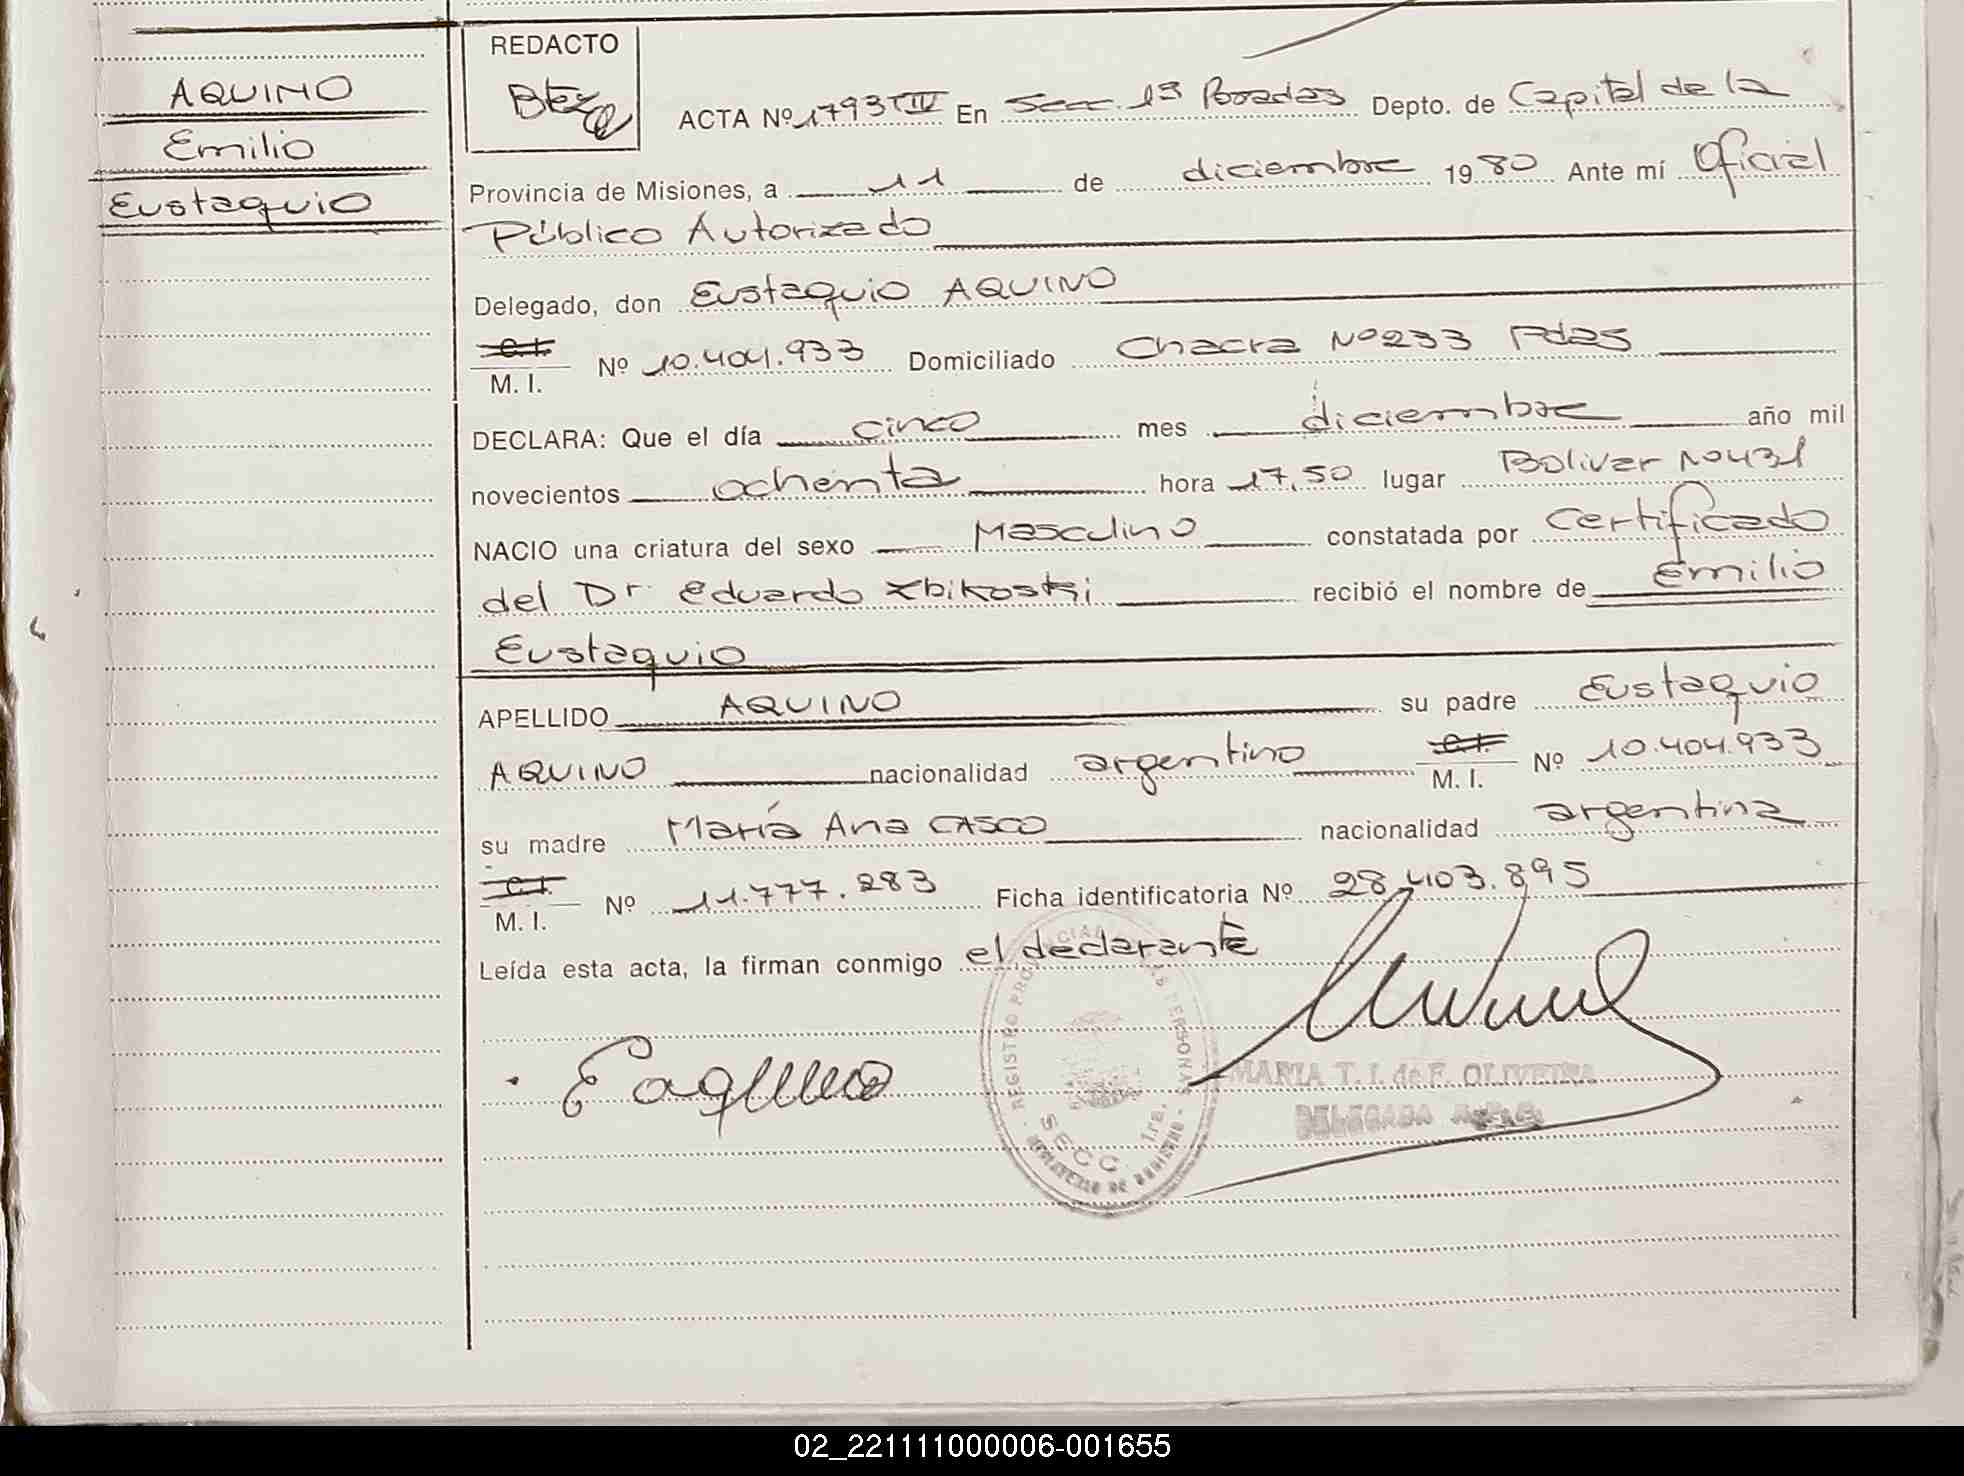 AQUINO
Emilio
Eustaquio
REDACTO
ACTA Nº 1793 TIV En Secc. 1ª Posadas Depto. de Capital de la
Provincia de Misiones, a 11 de diciembre 1980 Ante mí Oficial
Público Autorizado
Delegado, don Eustaquio AQUINO
C.I.
M. I. Nº 10.404.933 Domiciliado Chacra Nº 233 Pdas
DECLARA: Que el día cinco mes diciembre año mil
novecientos ochenta hora 17,50 lugar Bolivar Nº 431
NACIO una criatura del sexo Masculino constatada por Certificado
del Dr. Eduardo Zbikoski recibió el nombre de Emilio
Eustaquio
APELLIDO AQUINO su padre Eustaquio
AQUINO nacionalidad argentino C.I. M. I. Nº 10.404.933
su madre María Ana CASCO nacionalidad argentina
C.I.
M. I. Nº 11.777.283 Ficha identificatoria Nº 28.403.895
Leída esta acta, la firman conmigo el declarante
MARIA T. I. de F. OLIVEIRA
DELEGADA
SECC. 1ra.
02_221111000006-001655